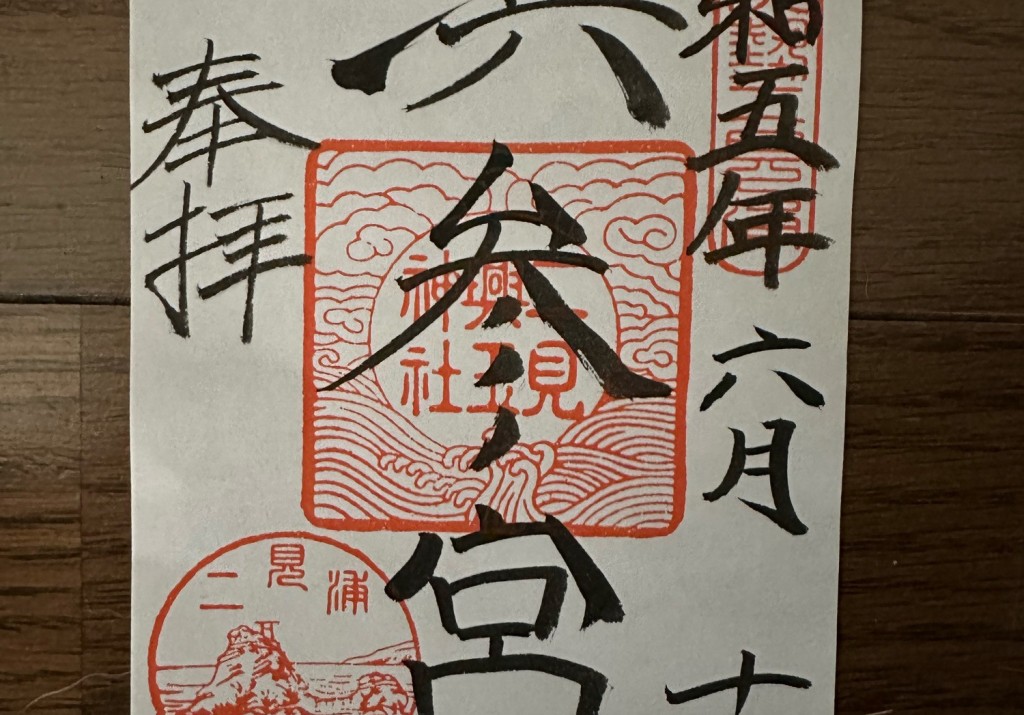 和五年六月十
参宮
奉拝
二見
興玉
神社
二見浦